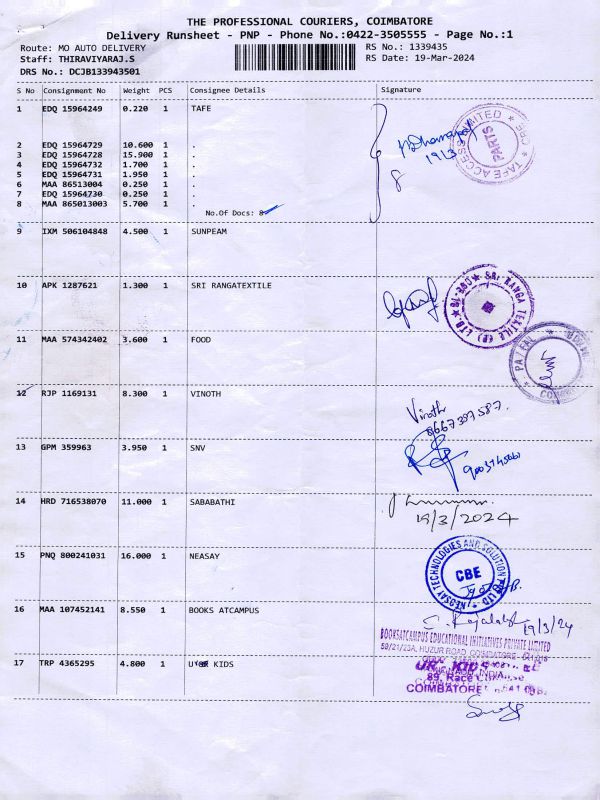 THE PROFESSIONAL COURIERS, COIMBATORE
Delivery Runsheet - PNP - Phone No.:0422-3505555 - Page No.:1
Route: MO AUTO DELIVERY RS No.: 1339435
Staff: THIRAVIYARAJ.S RS Date: 19-Mar-2024
DRS No.: DCJB133943501
S No Consignment No Weight PCS Consignee Details Signature
1 EDQ 15964249 0.220 1 TAFE
2 EDQ 15964729 10.600 1 .
3 EDQ 15964728 15.900 1 .
4 EDQ 15964732 1.700 1 .
5 EDQ 15964731 1.950 1 .
6 MAA 86513004 0.250 1 .
7 EDQ 15964730 0.250 1 .
8 MAA 865013003 5.700 1 .
No.Of Docs: 8
19/3
8
TAFE ACCESS LIMITED
PARTS
CBE
9 IXM 506104848 4.500 1 SUNPEAM
10 APK 1287621 1.300 1 SRI RANGATEXTILE
SRI RANGA TEXTILE (P) LTD.
11 MAA 574342402 3.600 1 FOOD
12 RJP 1169131 8.300 1 VINOTH
Vinoth
8667397587.
13 GPM 359963 3.950 1 SNV
14 HRD 716538070 11.000 1 SABABATHI
19/3/2024
15 PNQ 800241031 16.000 1 NEASAY
TECHNOLOGIES AND SOLUTION
CBE
16 MAA 107452141 8.550 1 BOOKS ATCAMPUS
19/3/24
BOOKSATCAMPUS EDUCATIONAL INITIATIVES PRIVATE LIMITED
59/21/23A, HUZUR ROAD, COIMBATORE
17 TRP 4365295 4.800 1 UR KIDS
UR KID
89, Race
COIMBATORE